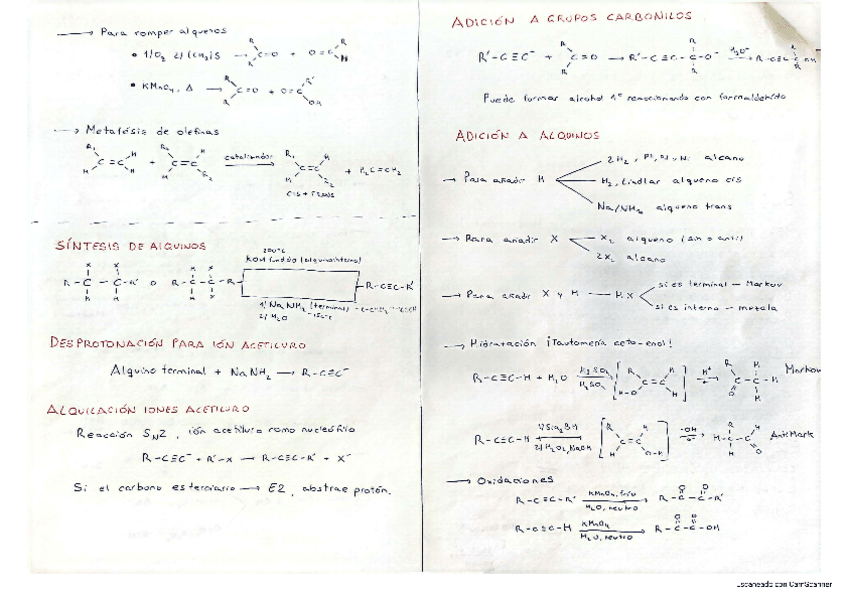 → Para romper alquenos
• 1) O₂ 2) (CH₃)₂S → R R C=O + O=C R H
• KMnO₄, Δ → R R C=O + O=C R' OH
→ Metatésis de olefinas
R₁ H C=C H H + H H C=C H R₂ catalizador → R₁ H C=C H R₂ + H₂C=CH₂
cis + trans
SÍNTESIS DE ALQUINOS
200°C
KOH fundido (alquino interno)
R-C-C-R' o R-C-C-R → R-C≡C-R'
1) NaNH₂ (terminal)
2) H₂O -150°C
DESPROTONACIÓN PARA IÓN ACETILURO
Alquino terminal + NaNH₂ → R-C≡C⁻
ALQUILACIÓN IONES ACETILURO
Reacción SN2, ión acetiluro como nucleófilo
R-C≡C⁻ + R'-X → R-C≡C-R' + X⁻
Si el carbono es terciario → E2, abstrae protón.
ADICIÓN A GRUPOS CARBONILOS
R'-C≡C⁻ + R R C=O → R'-C≡C-C-O⁻ H₃O⁺ → R-C≡C-C-OH
Puede formar alcohol 1º reaccionando con formaldehído
ADICIÓN A ALQUINOS
→ Para añadir H
2H₂, Pt, Pd, Ni alcano
H₂, Lindlar alqueno cis
Na/NH₃ alqueno trans
→ Para añadir X
X₂ alqueno (sin o anti)
2X₂ alcano
→ Para añadir X y H — HX
si es terminal — Markov
si es interno — mezcla
→ Hidratación ¡Tautomería ceto-enol!
R-C≡C-H + H₂O HgSO₄ H₂SO₄ [R H C=C H-O H] H⁺ Markov
R-C≡C-H 1) Sia₂BH 2) H₂O₂, NaOH [R H C=C H O-H] ⁻OH AntiMark
→ Oxidaciones
R-C≡C-R' KMnO₄, frío H₂O, neutro → R-C-C-R'
R-C≡C-H KMnO₄ H₂O, neutro → R-C-C-OH
Escaneado con CamScanner